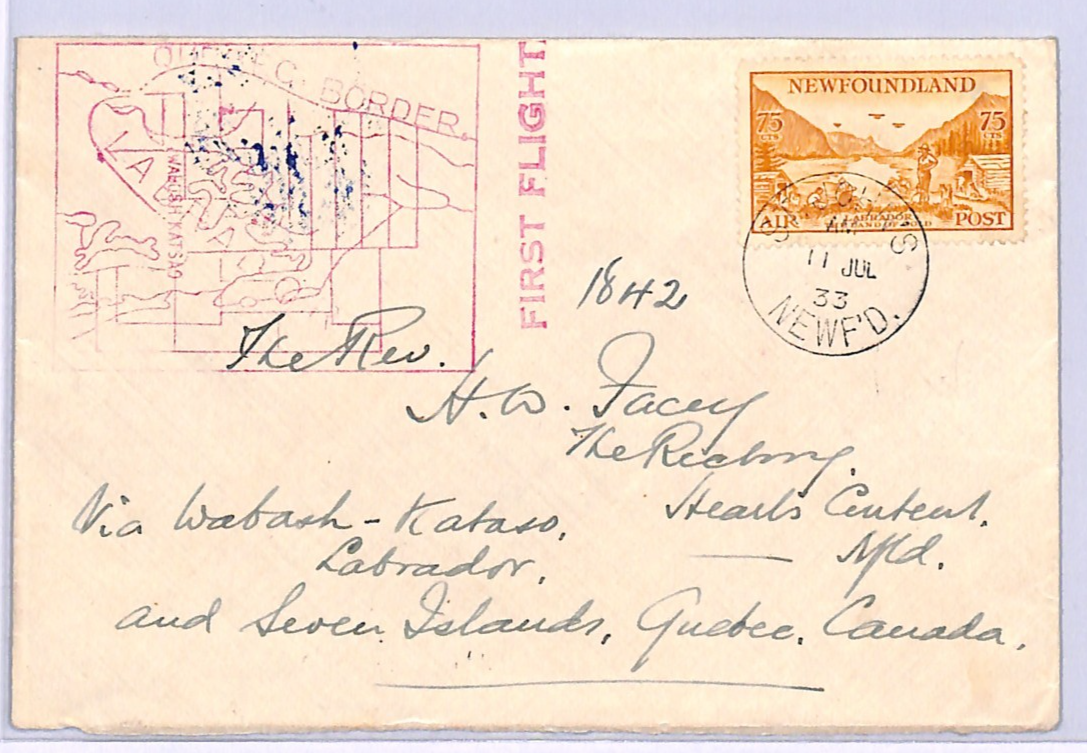 QUEBEC BORDER.
LA
WABUSH KATSAO
FIRST FLIGHT
NEWFOUNDLAND
75 75
CTS CTS
LABRADOR
THE LAND OF GOLD
AIR POST
AM
11 JUL
33
NEWF'D.
1842
The Rev.
H. W. Facey
The Rectory.
Hearts Content.
Nfld.
Via Wabash - Kataso,
Labrador,
and Seven Islands, Quebec, Canada.